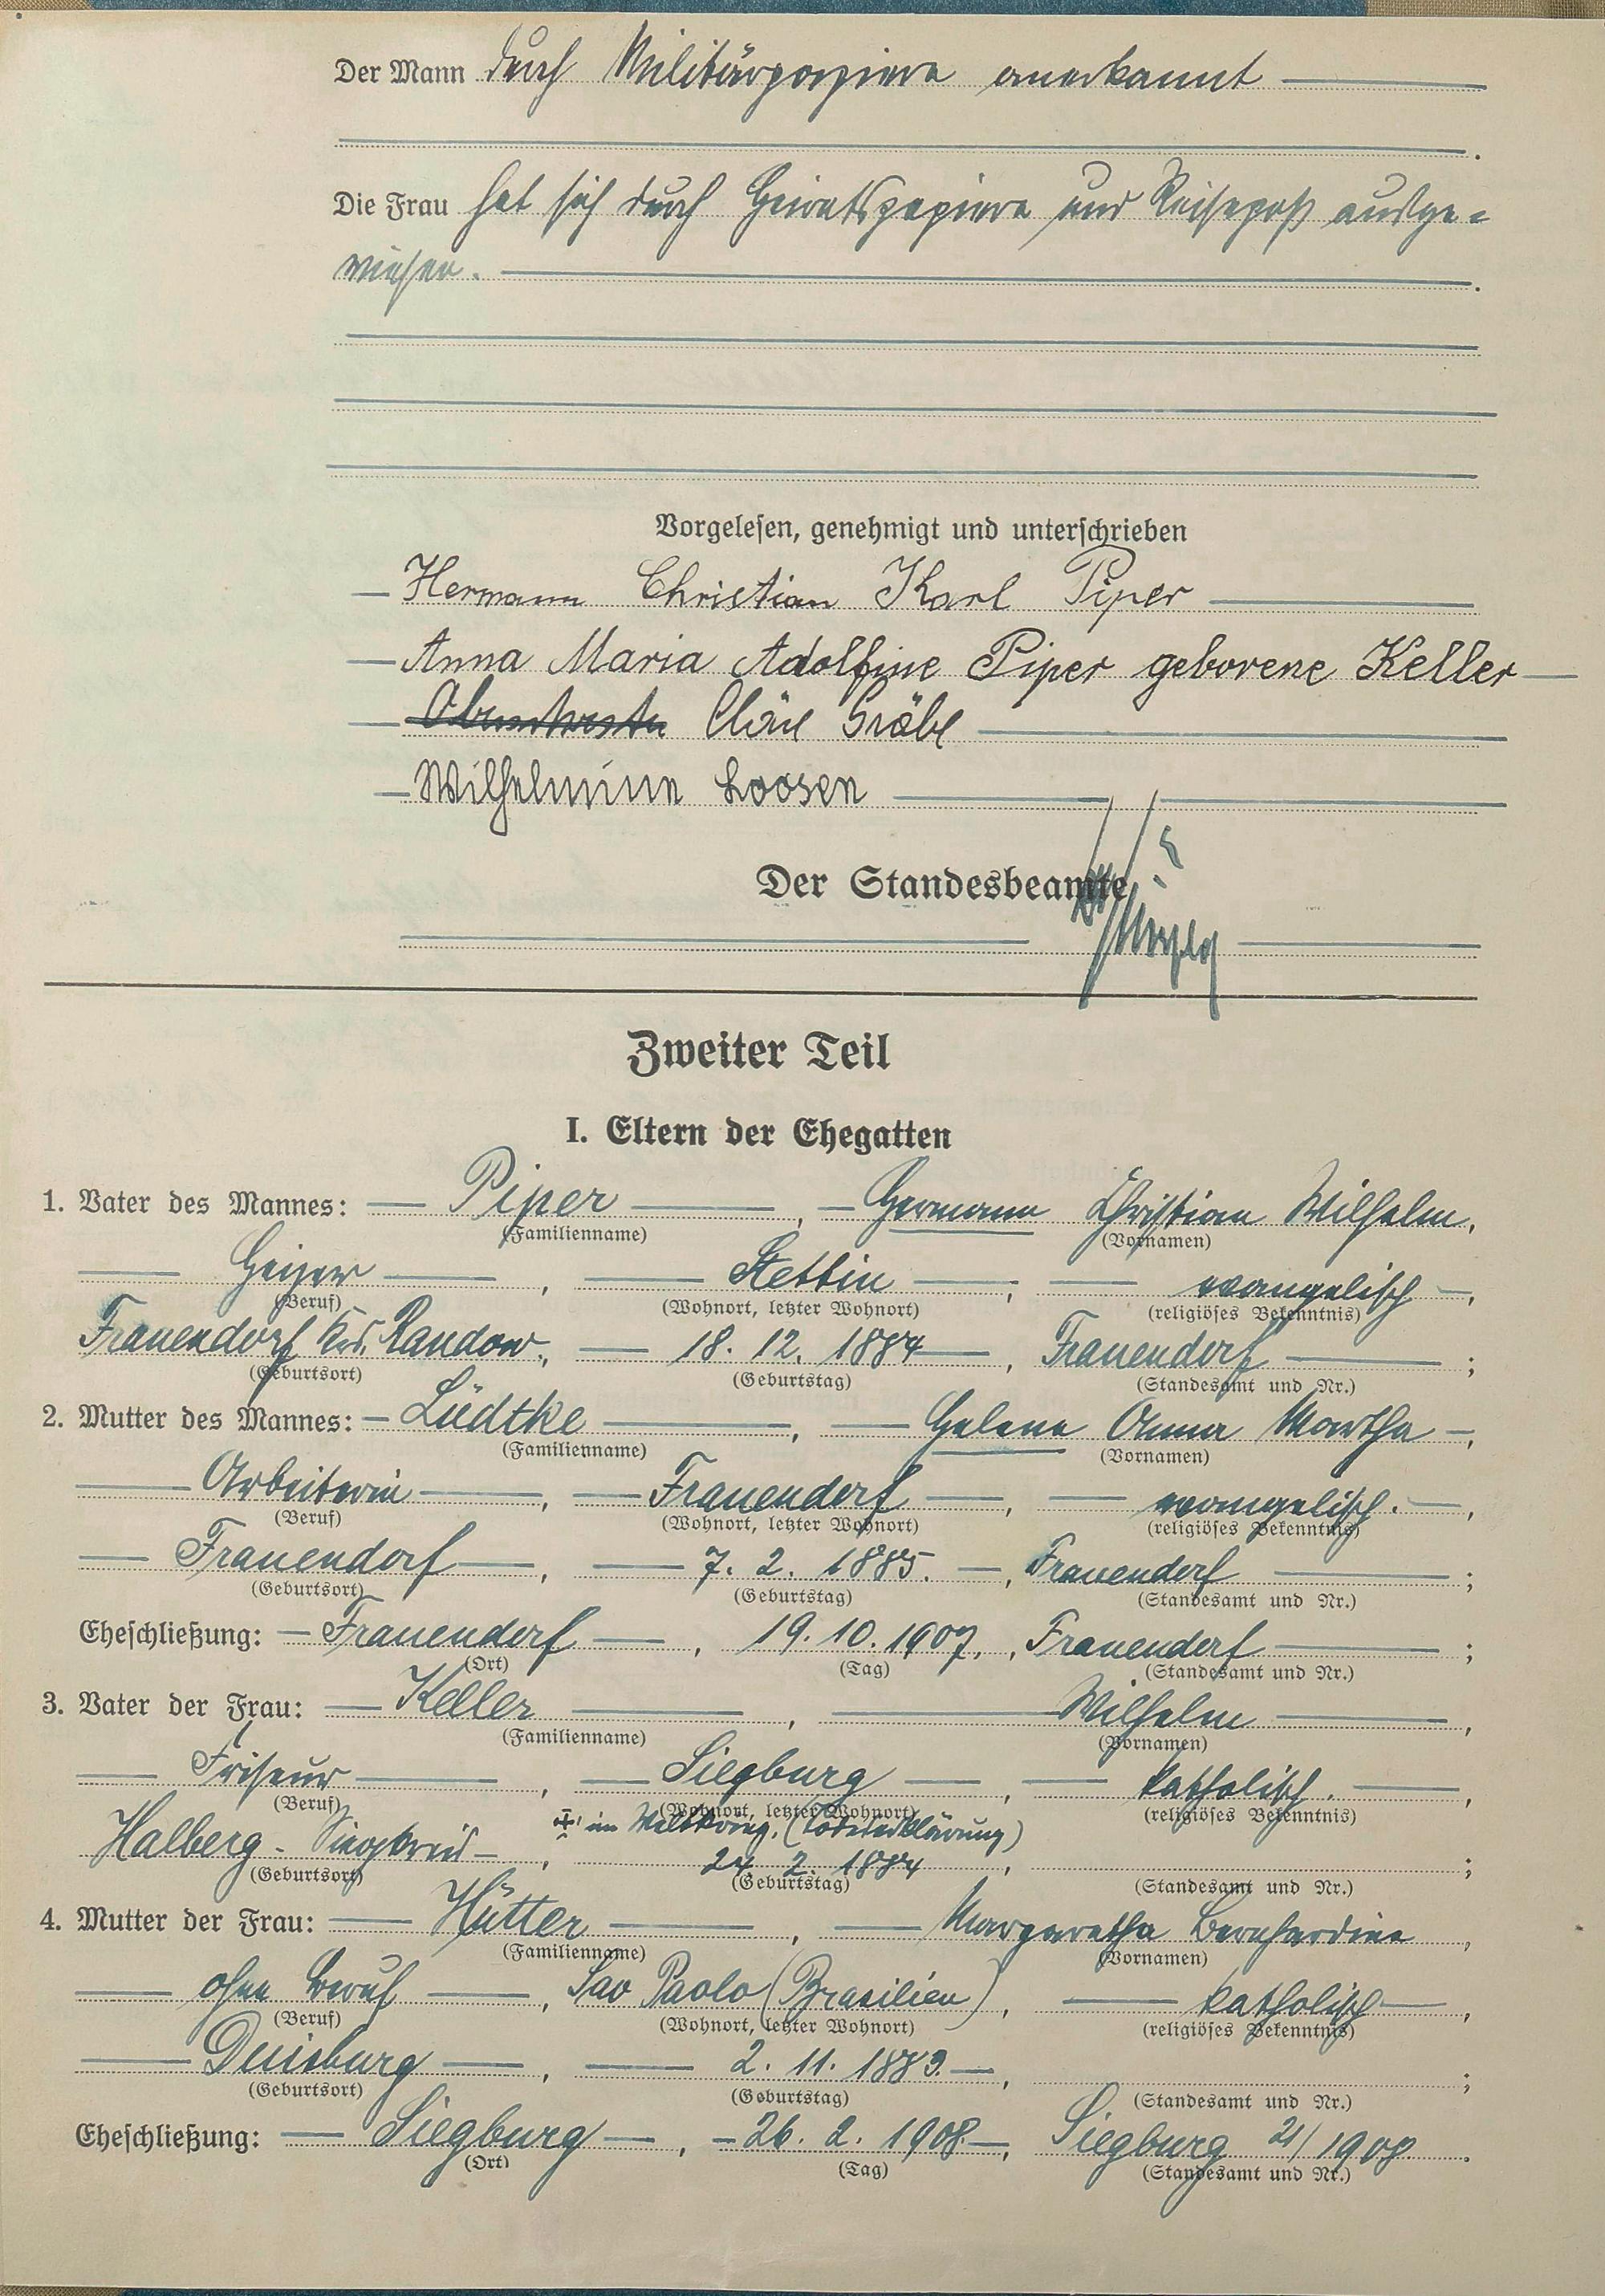 Der Mann durch Militärpapiere anerkannt
Die Frau hat sich durch Heiratspapiere und Reisepaß ausge=
wiesen.
Vorgelesen, genehmigt und unterschrieben
Hermann Christian Karl Piper
Anna Maria Adolfine Piper geborene Keller
Cläre Gräbe
Wilhelmine Loosen
Der Standesbeamte
Zweiter Teil
I. Eltern der Ehegatten
1. Vater des Mannes: Piper, Hermann Christian Wilhelm,
(Familienname) (Vornamen)
Heizer, Stettin, evangelisch,
(Beruf) (Wohnort, letzter Wohnort) (religiöses Bekenntnis)
Frauendorf Krs. Randow, 18. 12. 1884, Frauendorf;
(Geburtsort) (Geburtstag) (Standesamt und Nr.)
2. Mutter des Mannes: Lüdtke, Helene Anna Martha,
(Familienname) (Vornamen)
Arbeiterin, Frauendorf, evangelisch.,
(Beruf) (Wohnort, letzter Wohnort) (religiöses Bekenntnis)
Frauendorf, 7. 2. 1885., Frauendorf;
(Geburtsort) (Geburtstag) (Standesamt und Nr.)
Eheschließung: Frauendorf, 19. 10. 1907., Frauendorf;
(Ort) (Tag) (Standesamt und Nr.)
3. Vater der Frau: Keller, Wilhelm,
(Familienname) (Vornamen)
Friseur, Siegburg, katholisch.,
(Beruf) (Wohnort, letzter Wohnort) (religiöses Bekenntnis)
+ im Weltkrieg. (Todeserklärung)
Halberg - Siegkreis, 24. 2. 1884, ;
(Geburtsort) (Geburtstag) (Standesamt und Nr.)
4. Mutter der Frau: Hütter, Margaretha Bernhardine,
(Familienname) (Vornamen)
ohne Beruf, Sao Paolo (Brasilien), katholisch,
(Beruf) (Wohnort, letzter Wohnort) (religiöses Bekenntnis)
Duisburg, 2. 11. 1883., ;
(Geburtsort) (Geburtstag) (Standesamt und Nr.)
Eheschließung: Siegburg, 26. 2. 1908., Siegburg 21/1908.
(Ort) (Tag) (Standesamt und Nr.)